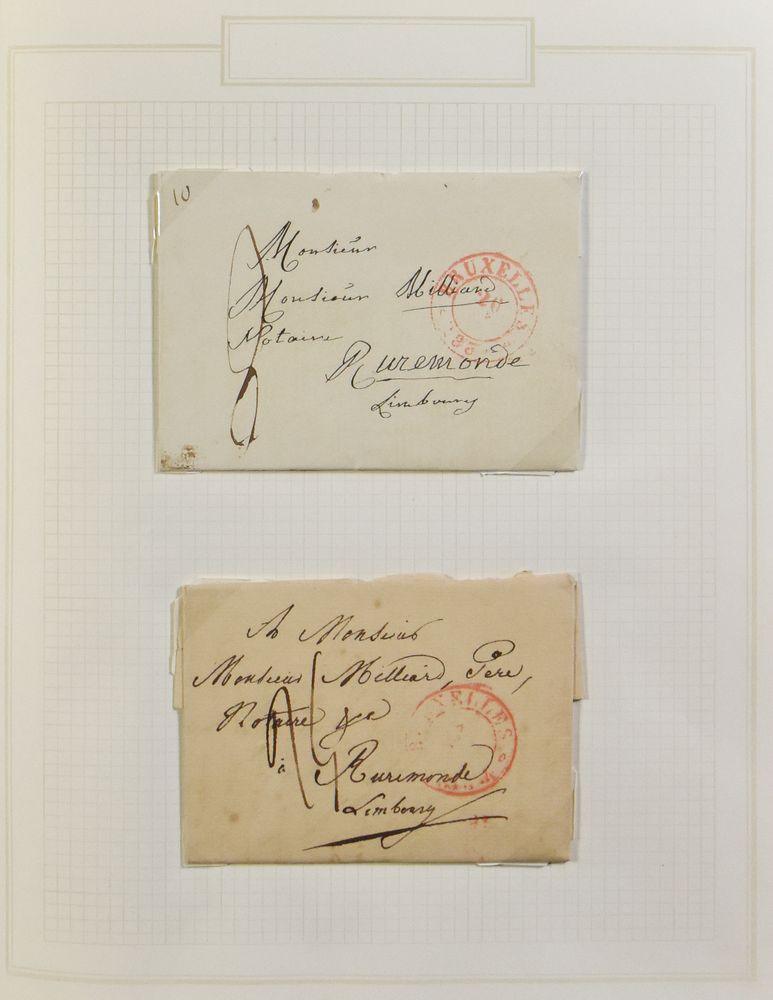 10
Monsieur
Monsieur Milliard
Notaire
Ruremonde
Limbourg
BRUXELLES
20
A Monsieur
Monsieur Milliard, Père,
Notaire &a
à Ruremonde
Limbourg